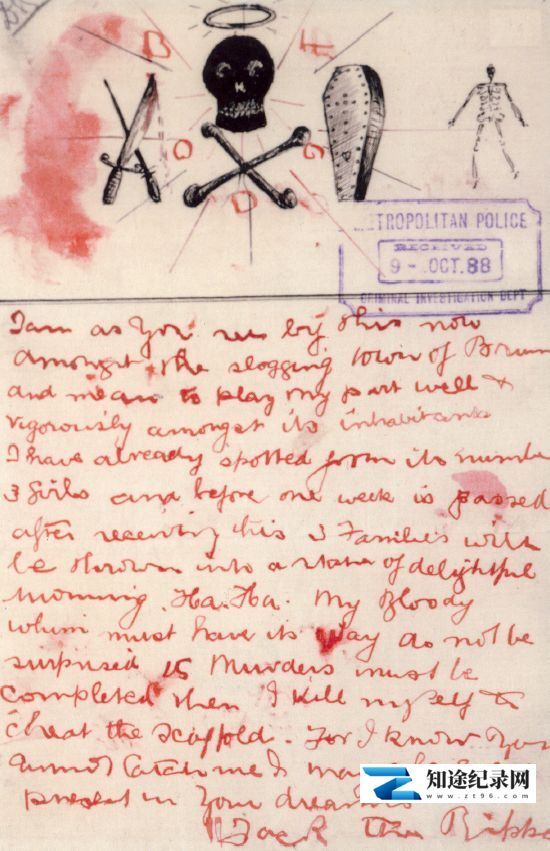 B
F
O
G
D
METROPOLITAN POLICE
RECEIVED
9 - OCT. 88
CRIMINAL INVESTIGATION DEPT
I am as you see by this now
amongst the slogging town of Brum
and mean to play my part well &
vigorously amongst its inhabitants
I have already spotted from its numbe
3 Girls and before one week is passed
after receiving this 3 Families will
be thrown into a state of delightful
mourning. Ha. Ha. My Bloody
whim must have its way do not be
surprised 15 Murders must be
completed then I kill myself to
cheat the scaffold. For I know you
cannot catch me I may
present in your dreams
Jack The Rippe
知途纪录网
www.zt96.com